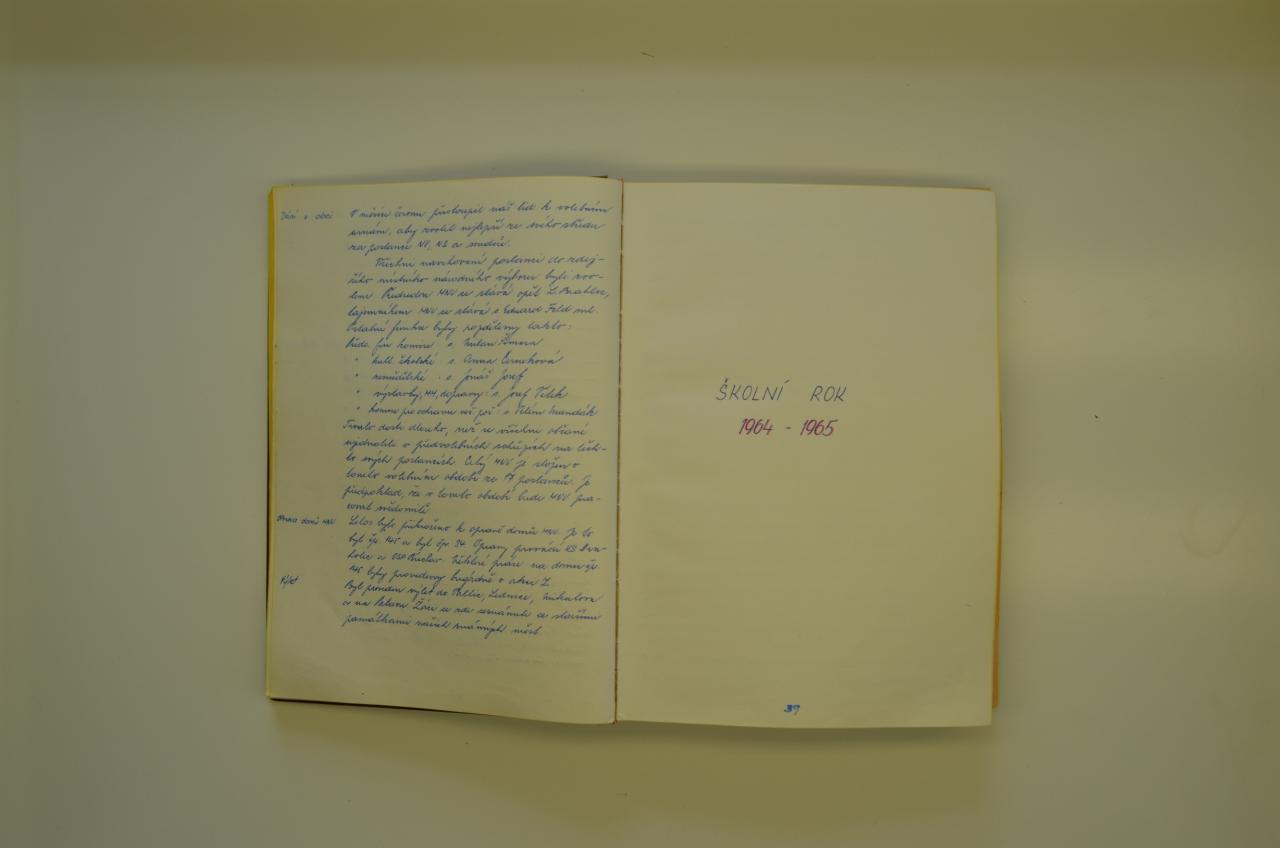 Dění v obci
V měsíci červnu přistoupil náš lid k volebním
urnám, aby zvolil nejlepší ze svého středu
za poslance NV, NS a soudce.
Všichni navrhovaní poslanci do zdej-
šího místního národního výboru byli zvo-
leni. Předsedou MNV se stává opět
tajemníkem MNV se stává s. Eduard Feld ml.
Ostatní funkce byly rozděleny takto:
Předs. fin. komise: s. Milan
" kult. školské: s. Anna
" zemědělské: s. Jonáš Josef
" výstavby, MH, dopravy: s. Josef
" komise pro ochranu veř. poř.: s. Vilém Mandák
Trvalo dosti dlouho, než se všichni občané
sjednotili o předvolebních schůzích na těch-
to svých poslancích. Celý MNV je složen v
tomto volebním období ze 17 poslanců. Je
předpoklad, že v tomto období bude MNV pra-
covat svědomitě.
Oprava domů MNV
Letos bylo přikročeno k opravě domů MNV. Je to
byt čp. 145 a byt čp. 34. Opravy provádí KS
a OSP Břeclav. Některé práce na domu čp.
145 byly provedeny brigádně v akci Z.
Výlet
Byl proveden výlet do Valtic, Lednice, Mikulova
a na Pálavu. Žáci se zde seznámili se staršími
památkami našich známých měst.
ŠKOLNÍ ROK
1964 - 1965
39